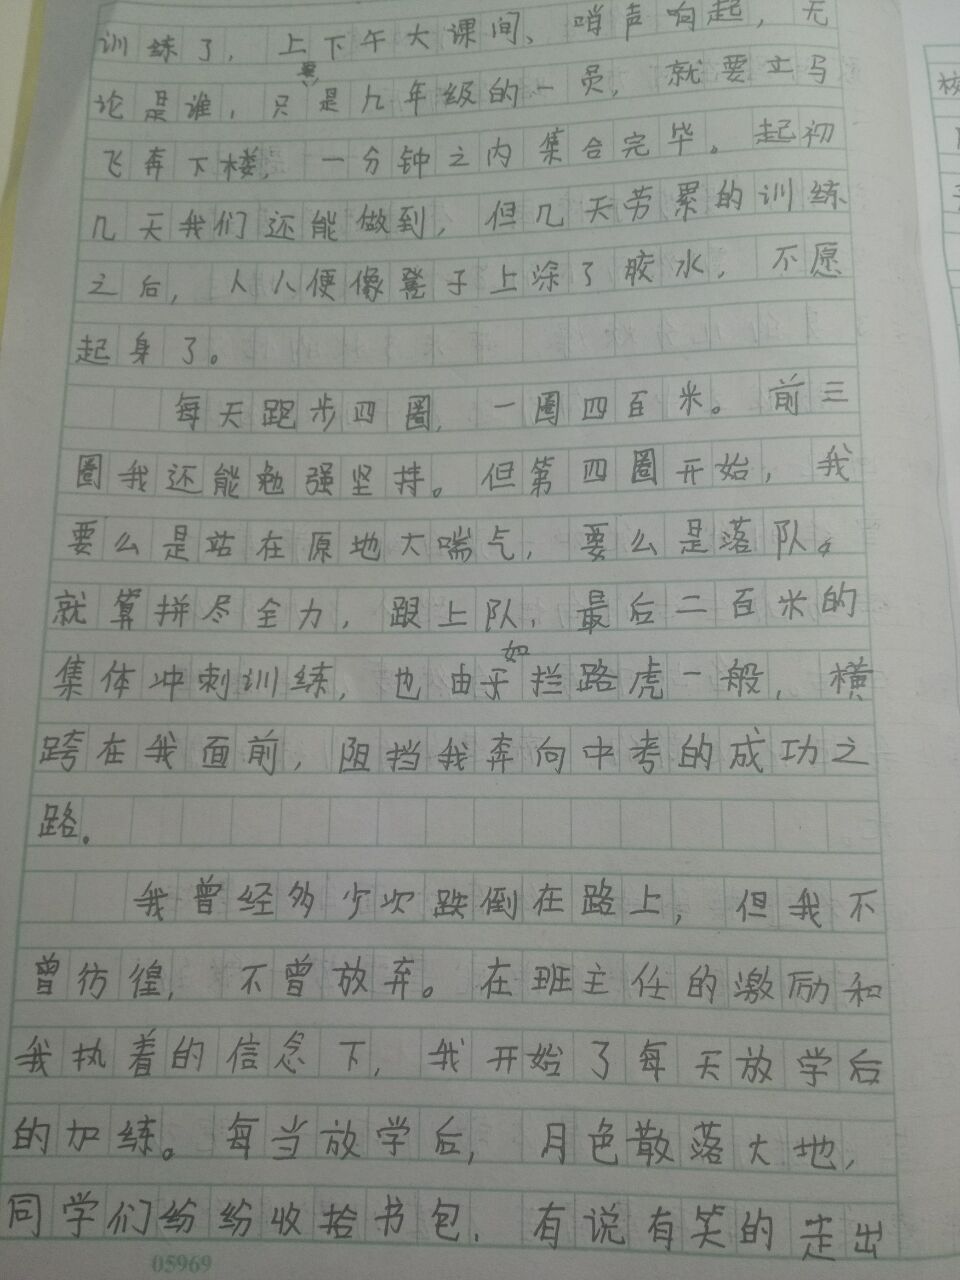 训练了，上下午大课间、哨声响起，无
论是谁，只要是九年级的一员，就要立马
飞奔下楼，一分钟之内集合完毕。起初
几天我们还能做到，但几天劳累的训练
之后，人人便像凳子上涂了胶水，不愿
起身了。
每天跑步四圈，一圈四百米。前三
圈我还能勉强坚持。但第四圈开始，我
要么是站在原地大喘气，要么是落队。
就算拼尽全力，跟上队，最后二百米的
集体冲刺训练，也由于如拦路虎一般，横
跨在我面前，阻挡我奔向中考的成功之
路。
我曾经多少次跌倒在路上，但我不
曾彷徨，不曾放弃。在班主任的激励和
我执着的信念下，我开始了每天放学后
的加练。每当放学后，月色散落大地，
同学们纷纷收拾书包，有说有笑的走出
05969